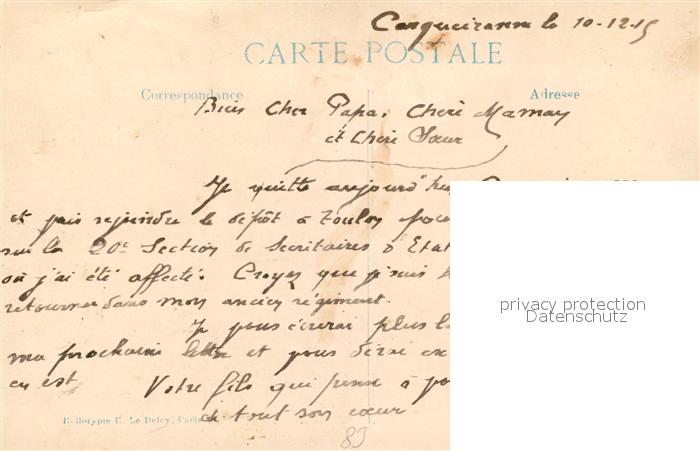 Carqueiranne le 10-12-15
CARTE POSTALE
Correspondance
Adresse
Bien Cher Papa, Chère Maman
et Chère Sœur
Je quitte aujourd'hui
et vais rejoindre le dépôt à Toulon pour
sur la 20e Section de Secrétaires d'Etat
où j'ai été affecté. Croyez que je suis
retourner dans mon ancien régiment.
Je vous écrirai plus
ma prochaine lettre et vous dirai
en est. Votre fils qui pense à
de tout son cœur
E. Le Deley, Paris
83
privacy protection
Datenschutz